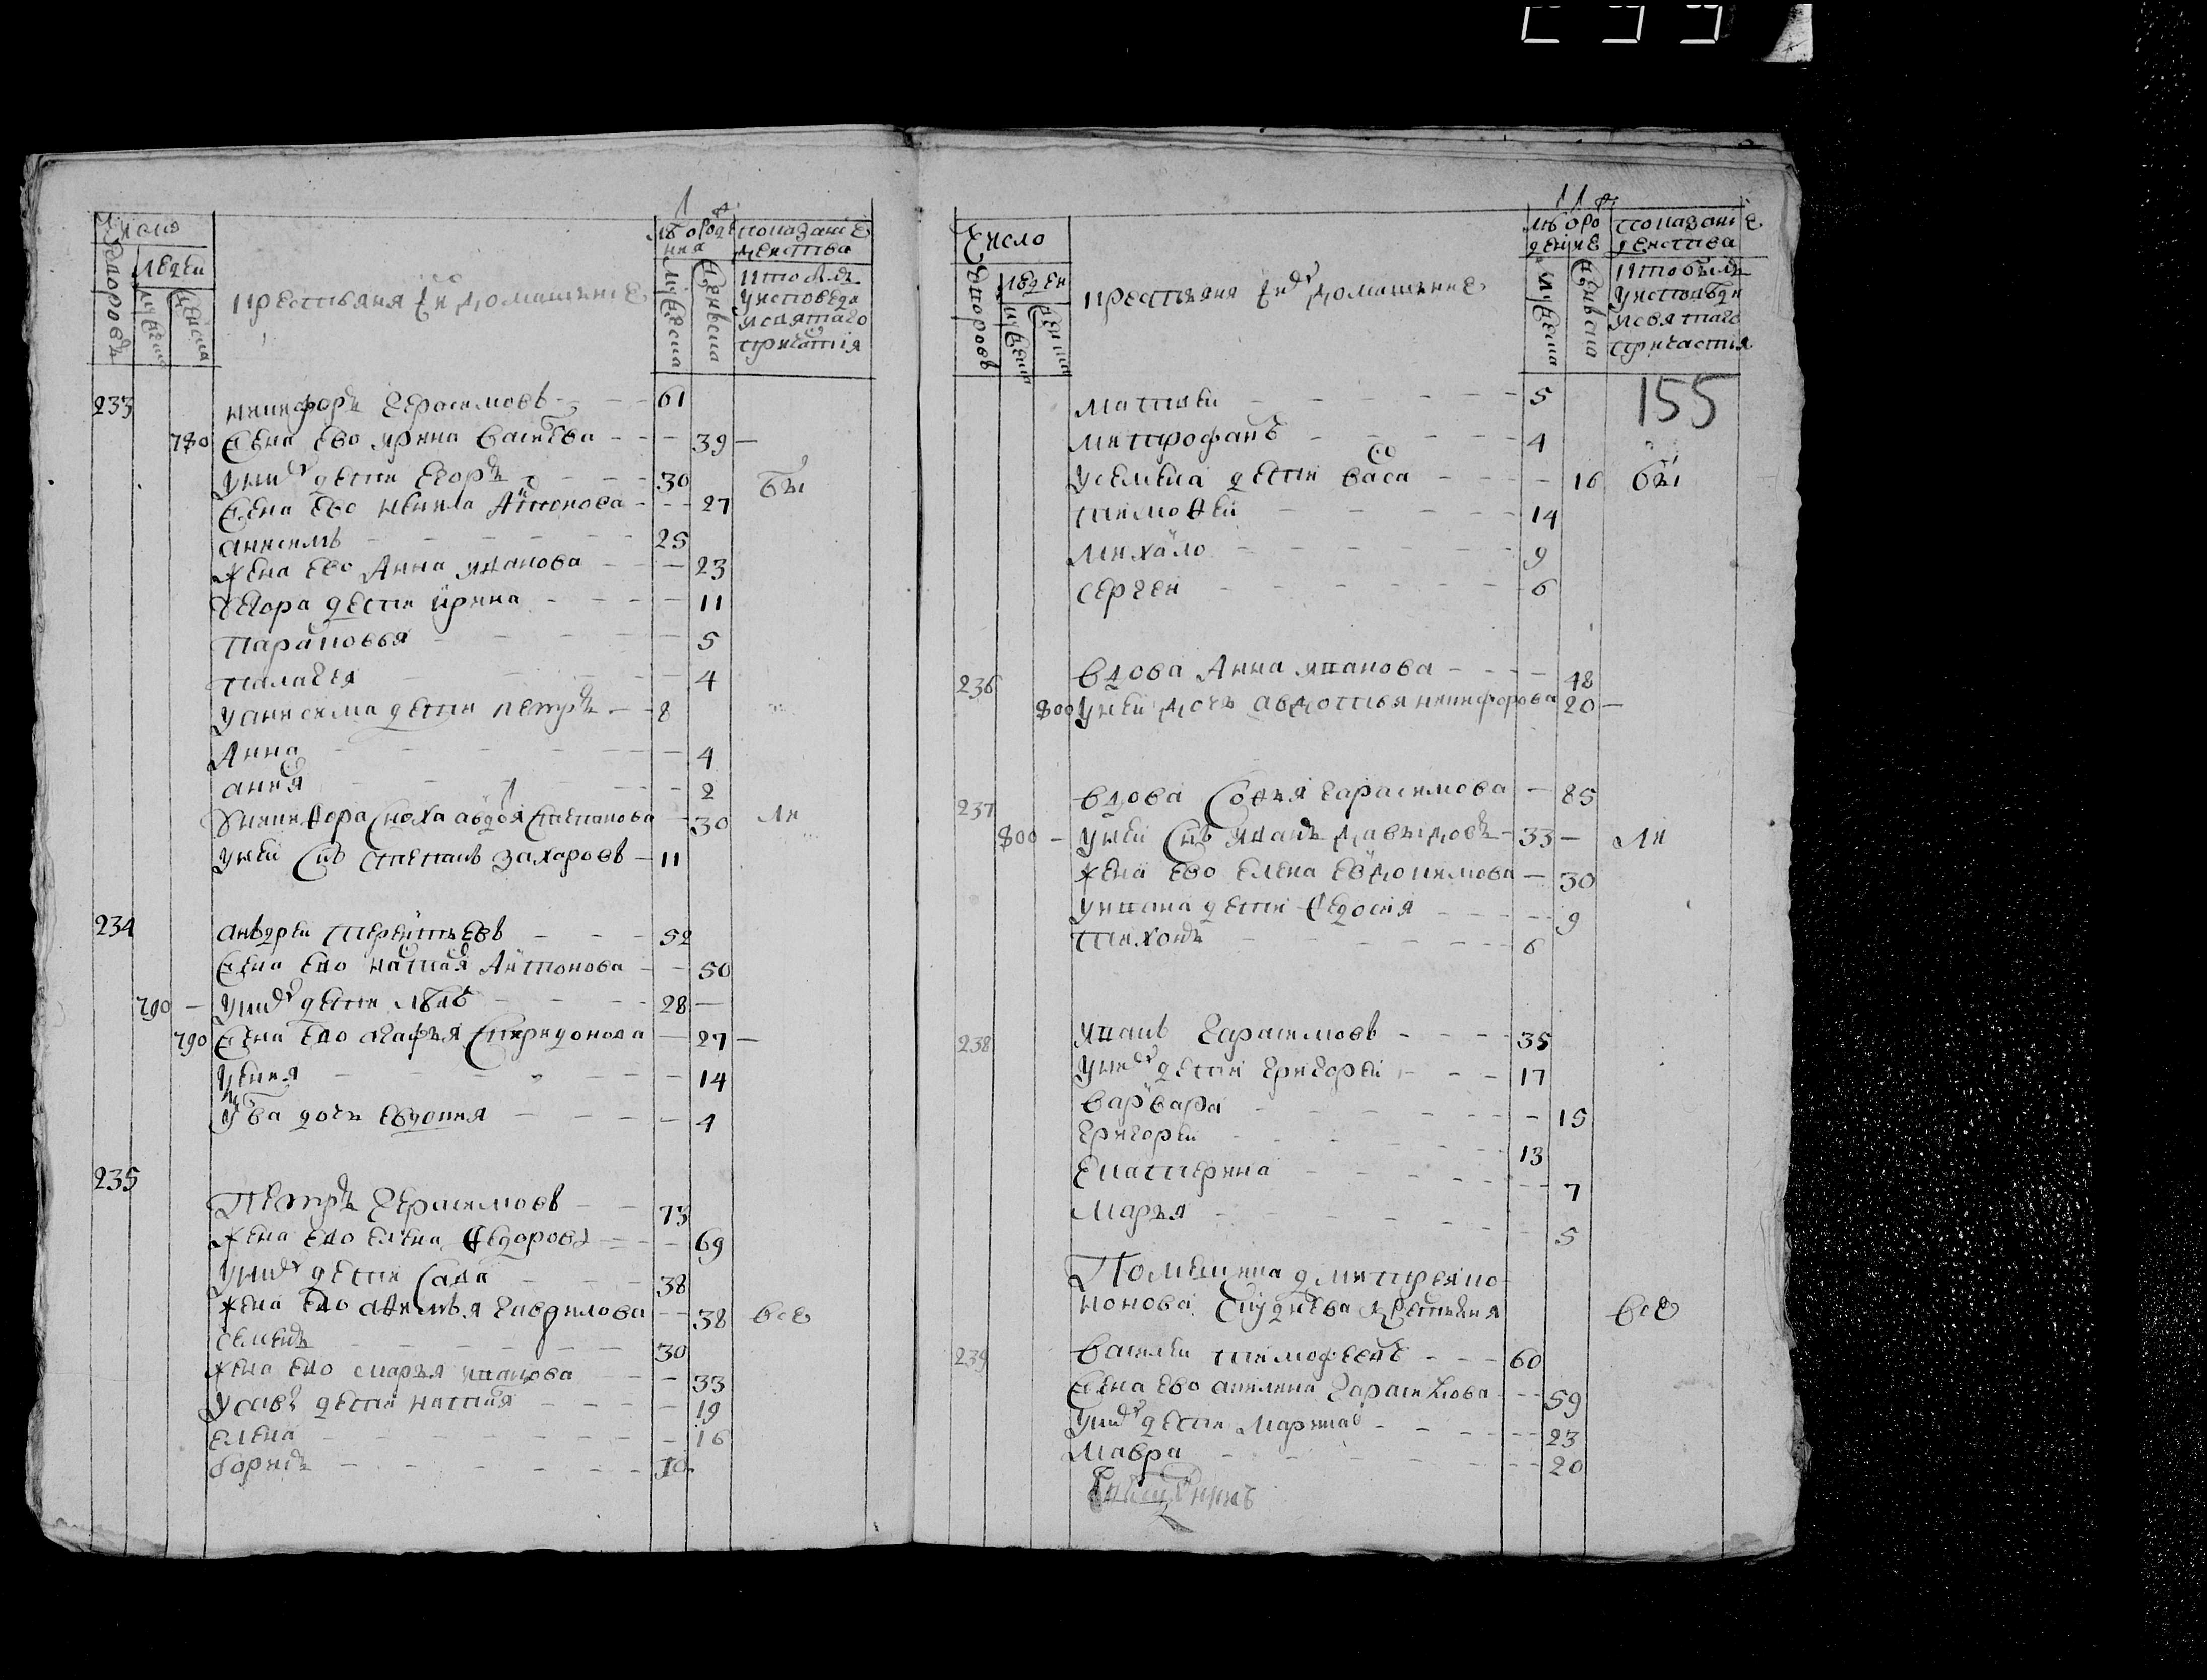 Число
дворовъ
людеи
мужеска
женска
крестьяня и ихъ домашние
лѣто рожде
ния
мужеска
женска
показание
действа
кто былъ
у исповеди
и святаго
причастия
233 никифоръ герасимовъ 61
780 жена ево ирина васильева 39
у нихъ дети егоръ 30 бы
жена ево ненила антонова 27
анисимъ 25
жена ево Анна иванова 23
егора дети ирина 11
Парасковья 5
палагея 4
у анисима дети петръ 8
Анна 4
2
у никифора сноха авдотья степанова 30 ли
у неи снъ степанъ захаровъ 11
234 андреи терентьевъ 52
жена ево настася Антонова 50
790 у нихъ дети левъ 28
790 жена ево агафья спиридонова 27
14
у льва дочь евдокия 4
235 Петръ герасимовъ 73
жена ево елена федорова 69
у нихъ дети сава 38
жена ево афимья гаврилова 38 все
семенъ 30
жена ево марья иванова 33
у савы дети настася 19
елена 16
борисъ 10
Число
дворовъ
людеи
мужеска
женска
крестьяня и ихъ домашние
лѣто ро
дение
мужеска
женска
показание
действа
кто былъ
у исповеди
и святаго
причастия
155
матвеи 5
митрофанъ 4
у семена дети васа 16 бы
тимофеи 14
михаило 9
сергеи 6
236 вдова Анна иванова 48
800 у неи дочь авдотья никифорова 20
237 вдова Софья гарасимова 85
800 у неи снъ иванъ давыдовъ 33 ли
жена ево елена евдокимова 30
у ивана дети федосия 9
тихонъ 6
238 иванъ гарасимовъ 35
у нихъ дети григореи 17
варвара 15
григореи 13
екатерина 7
Марья 5
Помещика дмитрея ко
нонова крестьяня все
239 васили тимофеевъ 60
жена ево акилина гарасимова 59
у нихъ дети Марина 23
Мавра 20